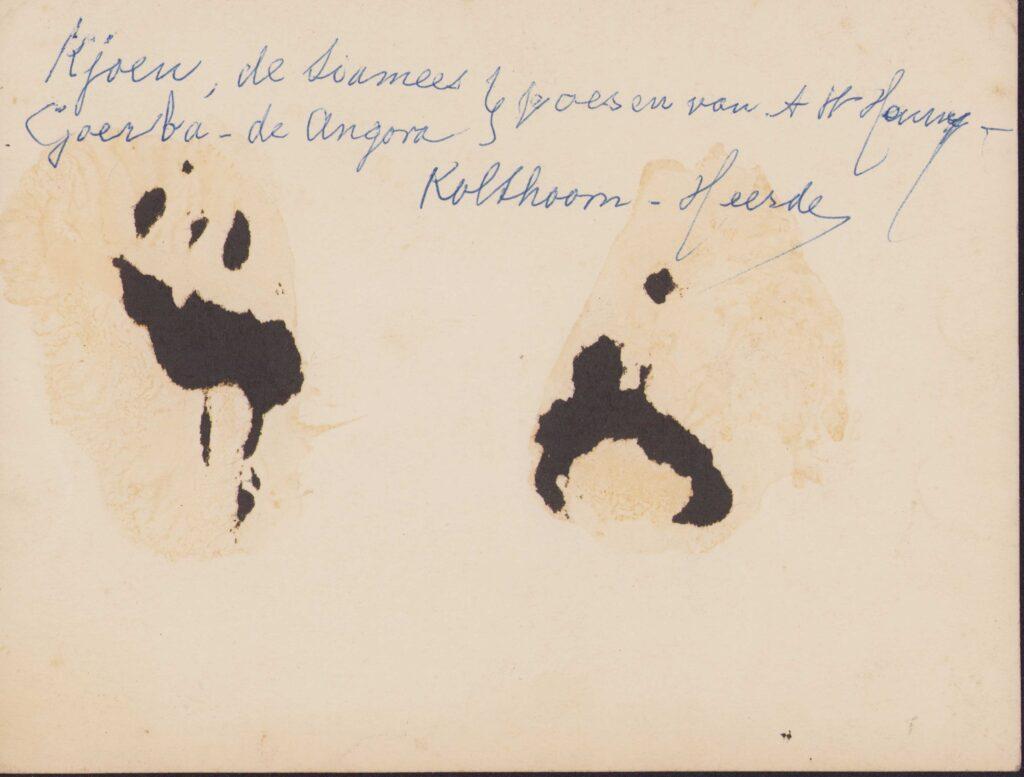 Kjoen, de Siamees } poesen van A W
Goerba - de Angora }
Kolthoorn - Heerde